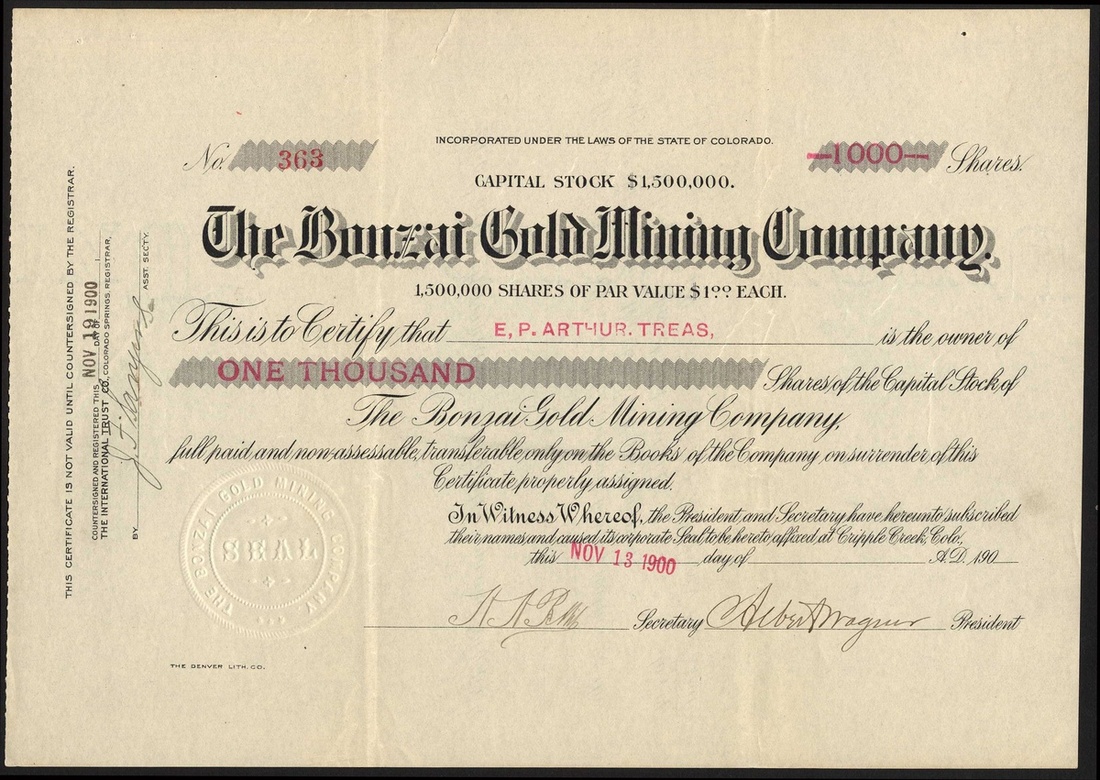 INCORPORATED UNDER THE LAWS OF THE STATE OF COLORADO.
No. 363
—1000— Shares.
CAPITAL STOCK $1,500,000.
The Bonzai Gold Mining Company.
1,500,000 SHARES OF PAR VALUE $1.00 EACH.
This is to Certify that E, P. ARTHUR. TREAS, is the owner of
ONE THOUSAND Shares of the Capital Stock of
The Bonzai Gold Mining Company,
full paid and non-assessable, transferable only on the Books of the Company on surrender of this
Certificate properly assigned.
In Witness Whereof, the President and Secretary have hereunto subscribed
their names and caused its corporate Seal to be hereto affixed at Cripple Creek, Colo,
this NOV 13 1900 day of A.D. 190
Secretary Albert Wagner President
THE DENVER LITH. CO.
THE BONZAI GOLD MINING COMPANY
SEAL
THIS CERTIFICATE IS NOT VALID UNTIL COUNTERSIGNED BY THE REGISTRAR.
COUNTERSIGNED AND REGISTERED THIS NOV 19 1900 DAY OF 1
THE INTERNATIONAL TRUST CO., COLORADO SPRINGS, REGISTRAR,
BY ASST. SECTY.